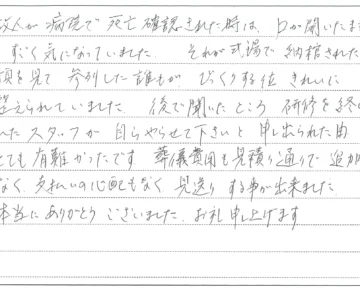 故人が病院で死亡確認された時は 口が開いたまま
ずごく気になっていました それが式場で納棺された
顔を見て 参列した誰もが びっくりする位 きれいに
整えられていました 後で聞いたところ 研修を終え
たスタッフが 自らやらせて下さいと 申し出られた由
とても有難かったです 葬儀費用も見積り通りで 追加
なく 支払いの心配もなく 見送りする事が出来ました
本当にありがとうございました お礼申し上げます